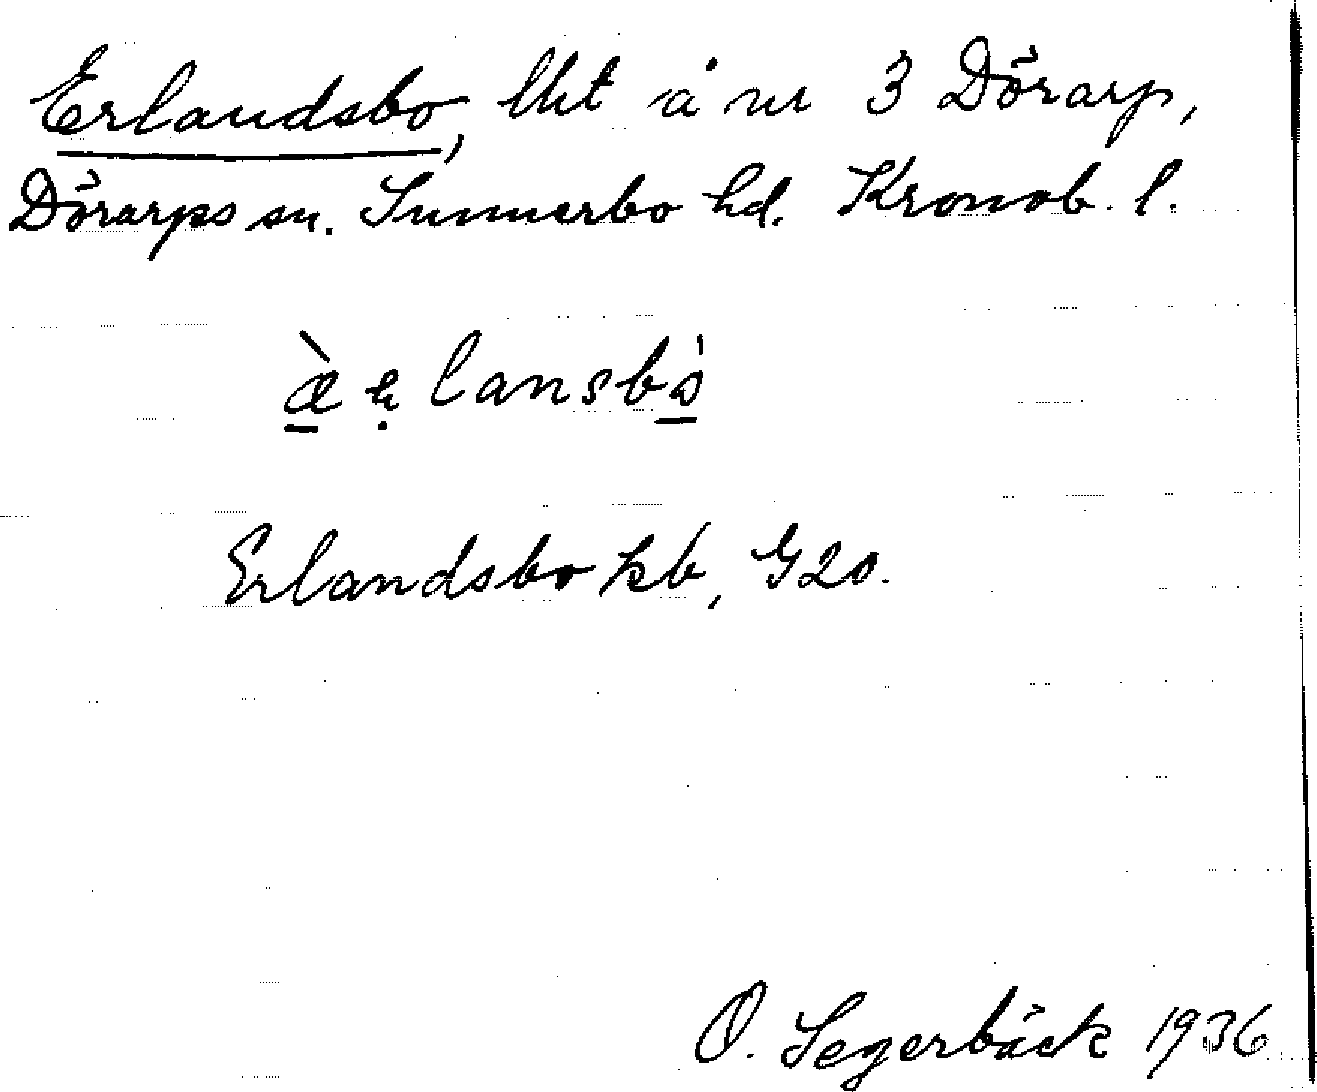 Erlandsbo, lht å nr 3 Dörarp,
Dörarps sn. Sunnerbo hd. Kronob. l.
Erlandsbo kb, G20.
O. Segerbäck 1936